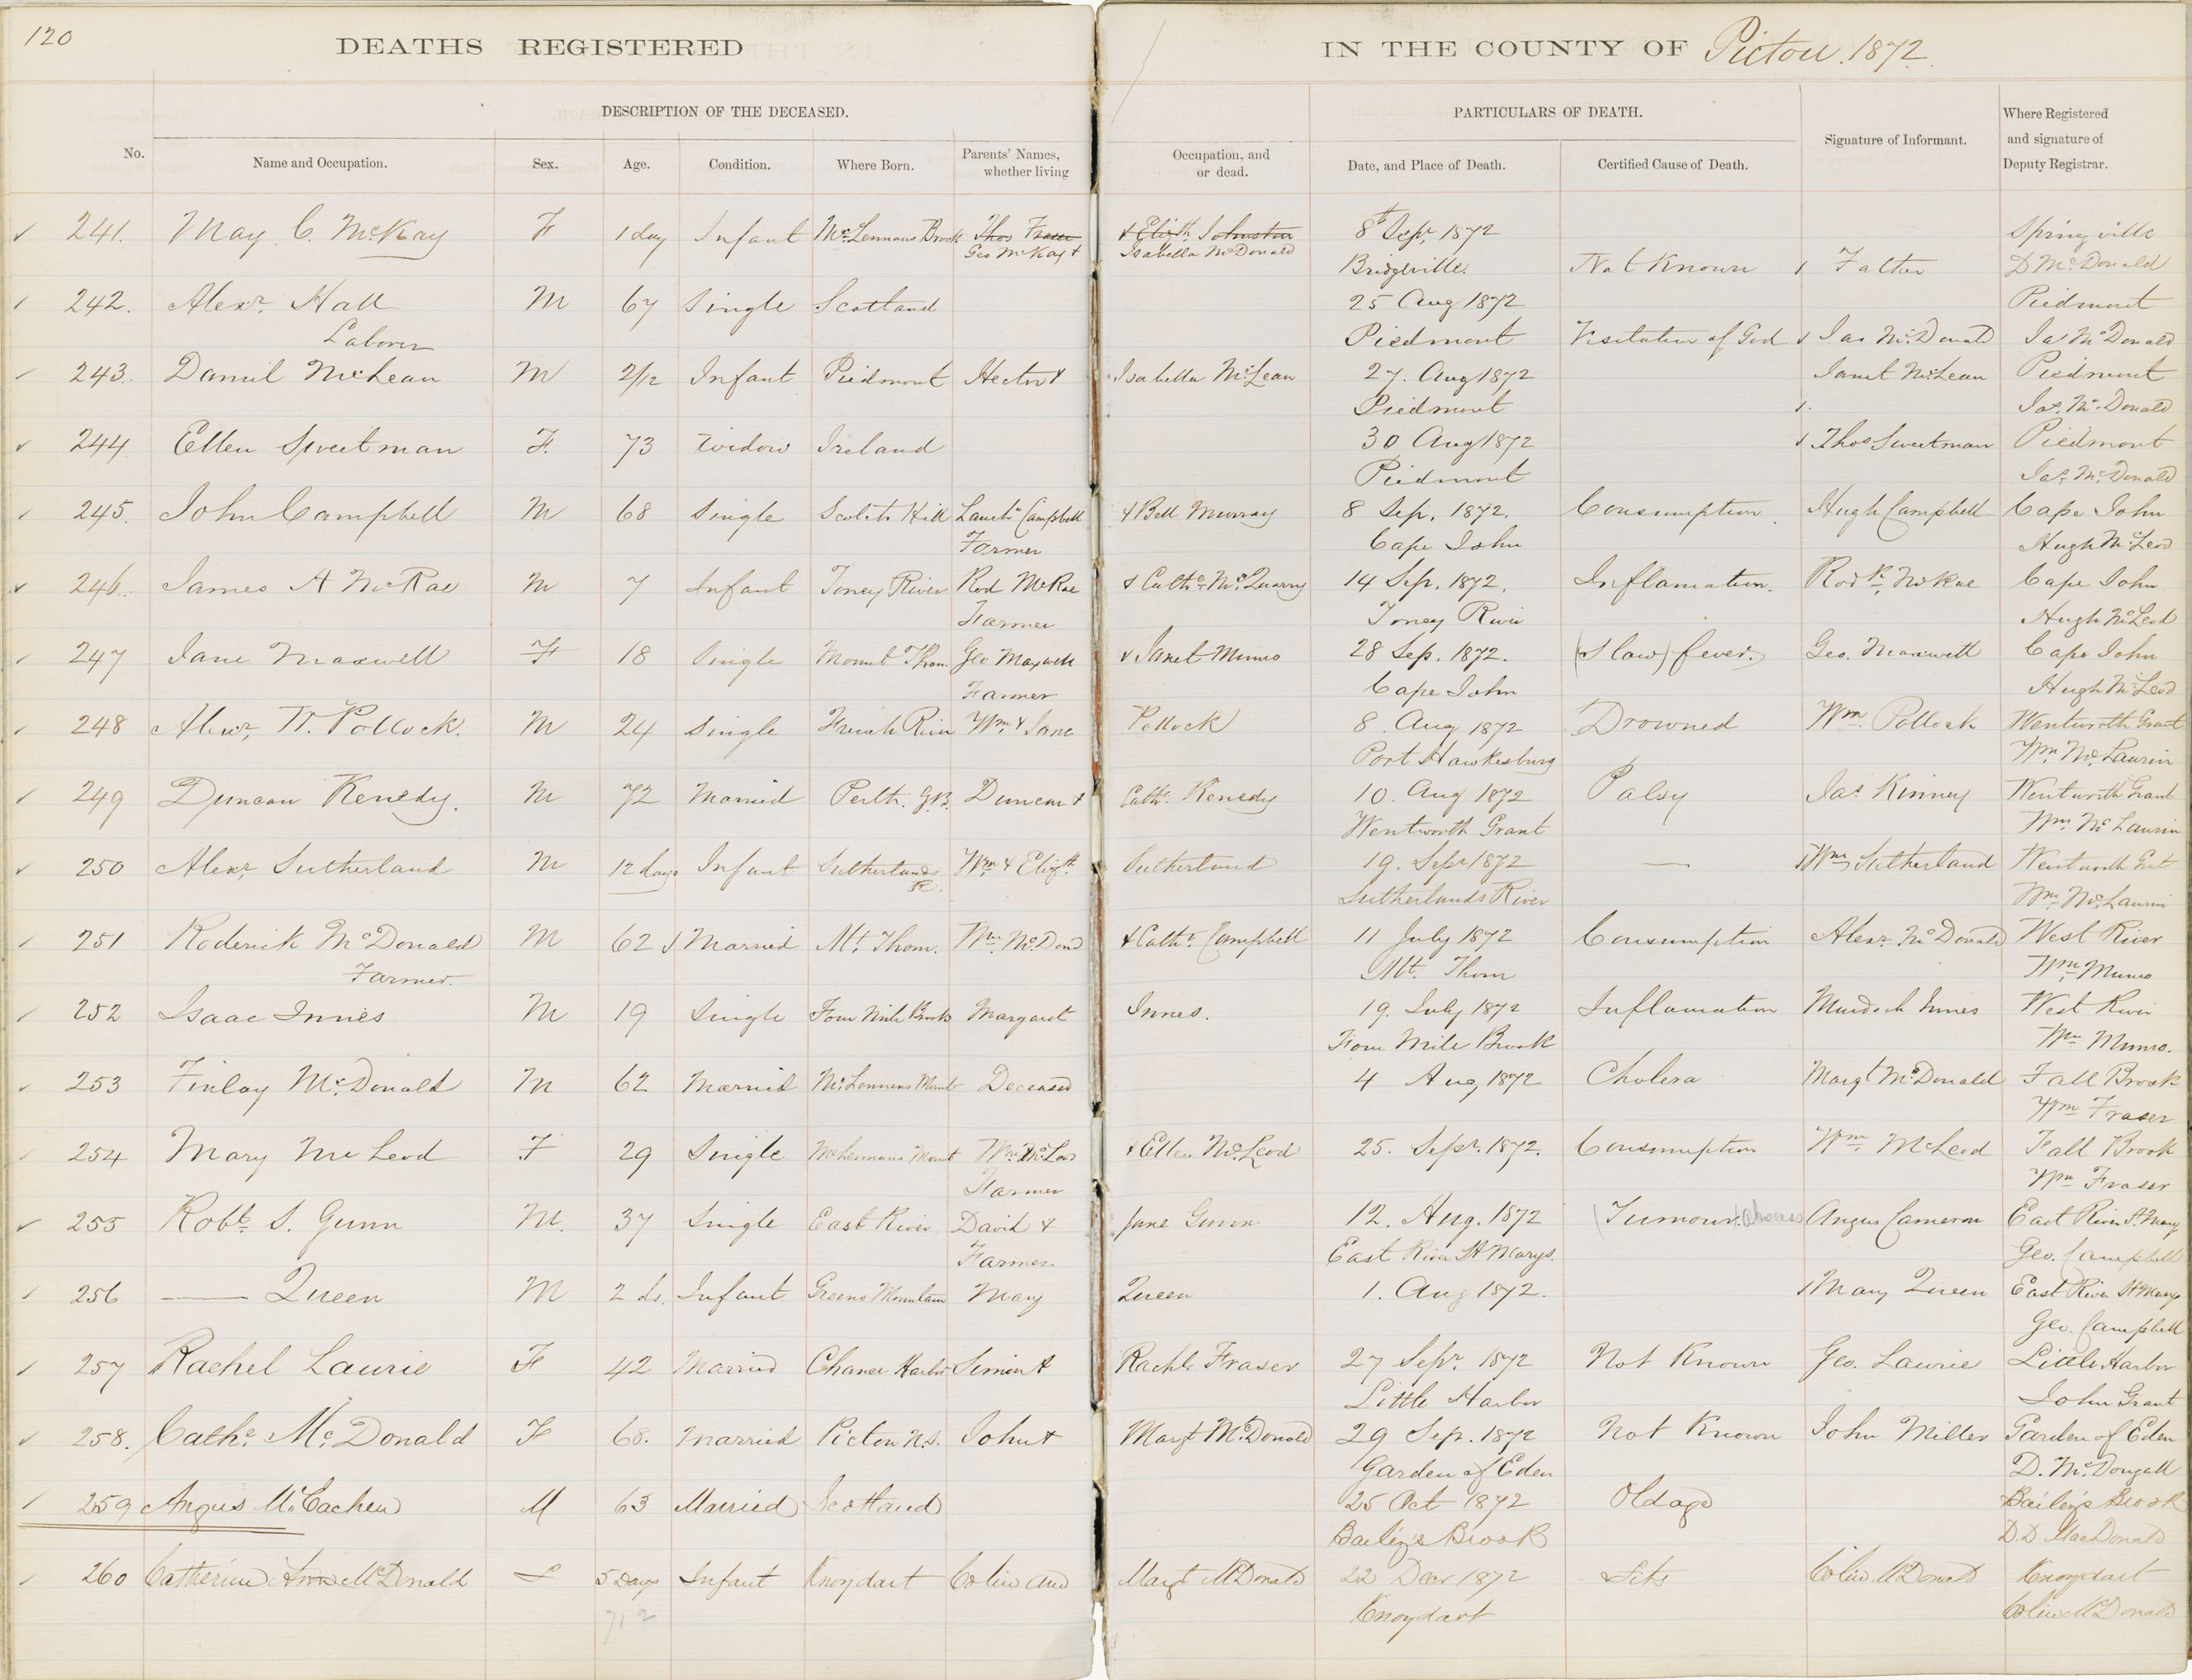 120
DEATHS REGISTERED IN THE COUNTY OF Pictou. 1872.
DESCRIPTION OF THE DECEASED. PARTICULARS OF DEATH.
No. Name and Occupation. Sex. Age. Condition. Where Born. Parents' Names, whether living Occupation, and or dead. Date, and Place of Death. Certified Cause of Death. Signature of Informant. Where Registered and signature of Deputy Registrar.
241. May C. McKay F 1 day Infant McLennans Brook Thos Fraser & Elizth. Johnston 8th Sepr. 1872 Springville
Geo McKay & Isabella McDonald Bridgeville Not Known Father D McDonald
242. Alexr. Hall M 67 Single Scotland 25 Aug 1872 Piedmont
Laborer Piedmont Visitation of God Jas McDonald Jas McDonald
243. Daniel McLean M 2/12 Infant Piedmont Hector & Isabella McLean 27. Aug 1872 Janet McLean Piedmont
Piedmont Jas. McDonald
244. Ellen Sweetman F. 73 Widow Ireland 30 Aug 1872 Thos Sweetman Piedmont
Piedmont Jas. McDonald
245. John Campbell M 68 Single Scotch Hill Lauchn Campbell & Bell Murray 8 Sep. 1872. Consumption Hugh Campbell Cape John
Farmer Cape John Hugh McLeod
246. James A McRae M 7 Infant Toney River Rod McRae & Cathe. McQuarry 14 Sep. 1872. Inflamation. Rodk. McRae Cape John
Farmer Toney River Hugh McLeod
247 Jane Maxwell F 18 Single Mount Thom Geo Maxwell & Janet Munro 28 Sep. 1872. (Slow) fever. Geo. Maxwell Cape John
Farmer Cape John Hugh McLeod
248 Alexr. W. Pollock. M 24 Single French River Wm. & Jane Pollock 8 Aug 1872 Drowned Wm. Pollock Wentworth Grant
Port Hawkesburg Wm. McLaurin
249 Duncan Kenedy. M 72 Married Perth. G.B. Duncan & Cathe. Kenedy 10. Aug 1872 Palsy Jas. Kinney Wentworth Grant
Wentworth Grant Wm. McLaurin
250 Alexr. Sutherland M 12 days Infant Sutherlands R. Wm. & Elizth. Sutherland 19. Sepr 1872 — Wm. Sutherland Wentworth Grt
Sutherlands River Wm. McLaurin
251 Roderick McDonald M 62 Married Mt. Thom. Wm. McDond & Cathe. Campbell 11 July 1872 Consumption Alexr. McDonald West River
Farmer. Mt. Thom Wm. Munro
252 Isaac Innes M 19 Single Four Mile Brook Margaret Innes. 19. July 1872 Inflamation Murdoch Innes West River
Four Mile Brook Wm Munro.
253 Finlay McDonald M 62 Married McLennans Mount Deceased 4 Aug, 1872 Cholera Margt McDonald Fall Brook
Wm Fraser
254 Mary McLeod F 29 Single McLennans Mount Wm. McLeod & Ellen McLeod 25. Sepr. 1872. Consumption Wm. McLeod Fall Brook
Farmer Wm Fraser
255 Robt. S. Gunn M. 37 Single East River David & Jane Gunn 12. Aug. 1872 (Tumour) Angus Cameron East River St. Mary
Farmer East River St Marys. Geo. Campbell
256 — Queen M 2 ds. Infant Greens Mountain Mary Queen 1. Aug 1872. Mary Queen East River St Marys
Geo. Campbell
257 Rachel Laurie F 42 Married Chance Harbor Simon & Rachl. Fraser 27 Sepr. 1872 Not Known Geo. Laurie Little Harbor
Little Harbor John Grant
258. Cathe. McDonald F 68. Married Pictou N.S. John & Margt McDonald 29 Sep. 1872 Not Known John Miller Garden of Eden
Garden of Eden D. McDougall
259 Angus McEachen M 63 Married Scotland 25 Oct 1872 Old age Bailey's Brook
Bailey's Brook D.D. MacDonald
260 Catherine Ann McDonald F 5 Days Infant Knoydart Colin and Margt McDonald 22 Decr 1872 Fits Colin McDonald Knoydart
712 Knoydart Colin McDonald